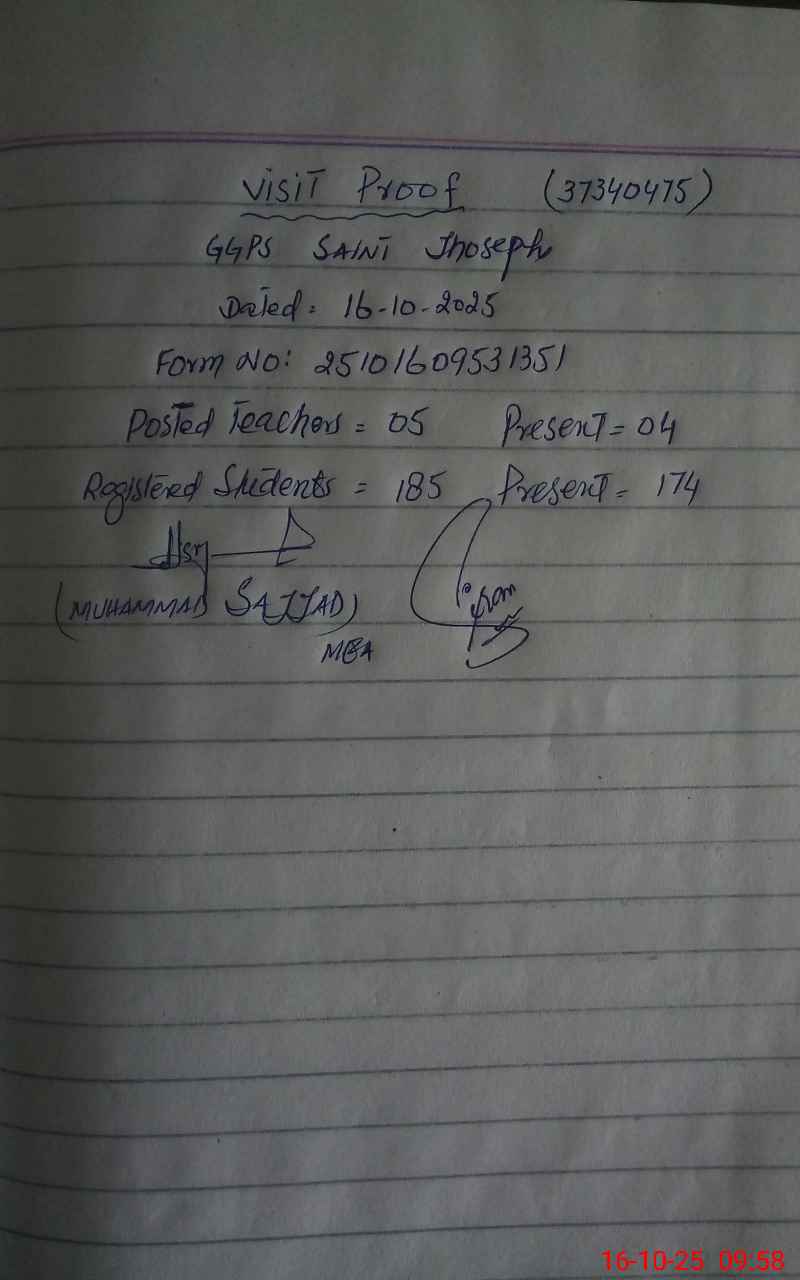 Visit Proof (37340475)
GGPS SAINT Jhoseph
Dated: 16-10-2025
Form No: 25101609531351
Posted Teachers = 05 Present = 04
Registered Students = 185 Present = 174
(MUHAMMAD SAJJAD)
MEA
16-10-25 09:58